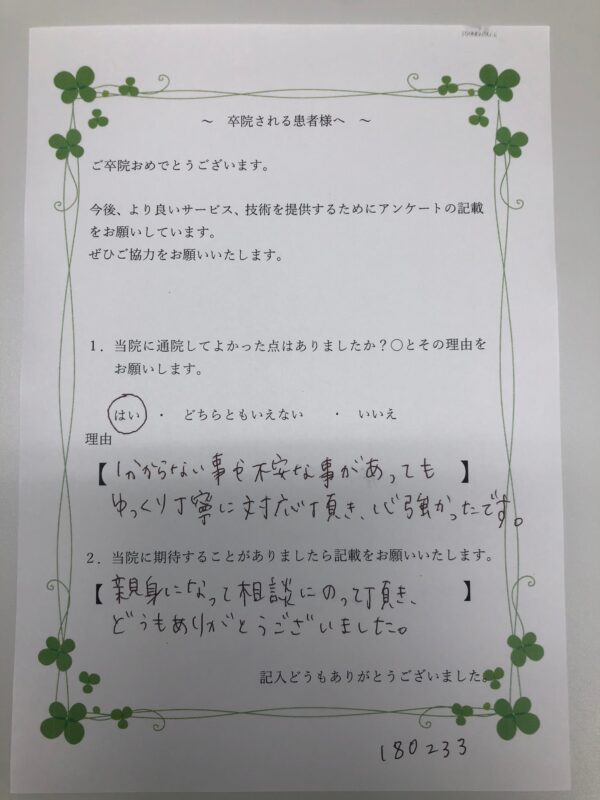 ～ 卒院される患者様へ ～
ご卒院おめでとうございます。
今後、より良いサービス、技術を提供するためにアンケートの記載
をお願いしています。
ぜひご協力をお願いいたします。
1．当院に通院してよかった点はありましたか？○とその理由を
お願いします。
はい ・ どちらともいえない ・ いいえ
理由
【わからない事や不安な事があっても】
ゆっくり丁寧に対応頂き、心強かったです。
2．当院に期待することがありましたら記載をお願いいたします。
【親身になって相談にのって頂き、】
どうもありがとうございました。
記入どうもありがとうございました。
180233